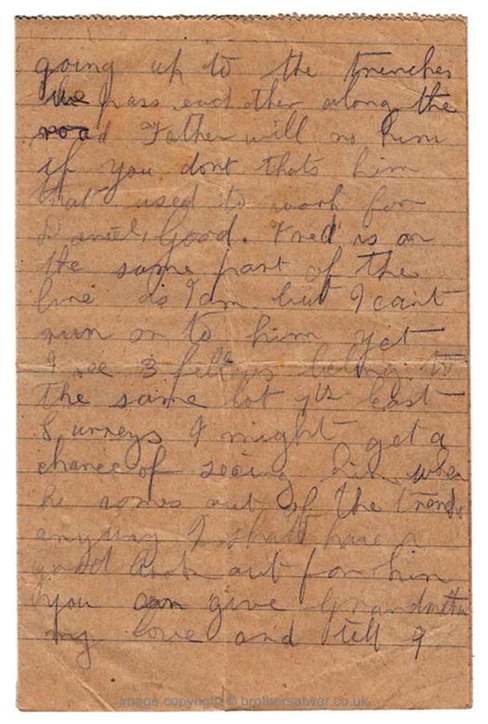 going up to the trenches
we pass each other along the
road Father will no him
if you dont thats him
that used to work for
Daniel Good. Fred is on
the same part of the
line as I am but I cant
run on to him yet
I see 3 fellows belong to
the same lot 7th East
Surreys I might get a
chance of seeing him when
he comes out of the trenches
anyway I shall have a
good look out for him
you can give Grandmother
my love and tell
image copyright © brothersatwar.co.uk